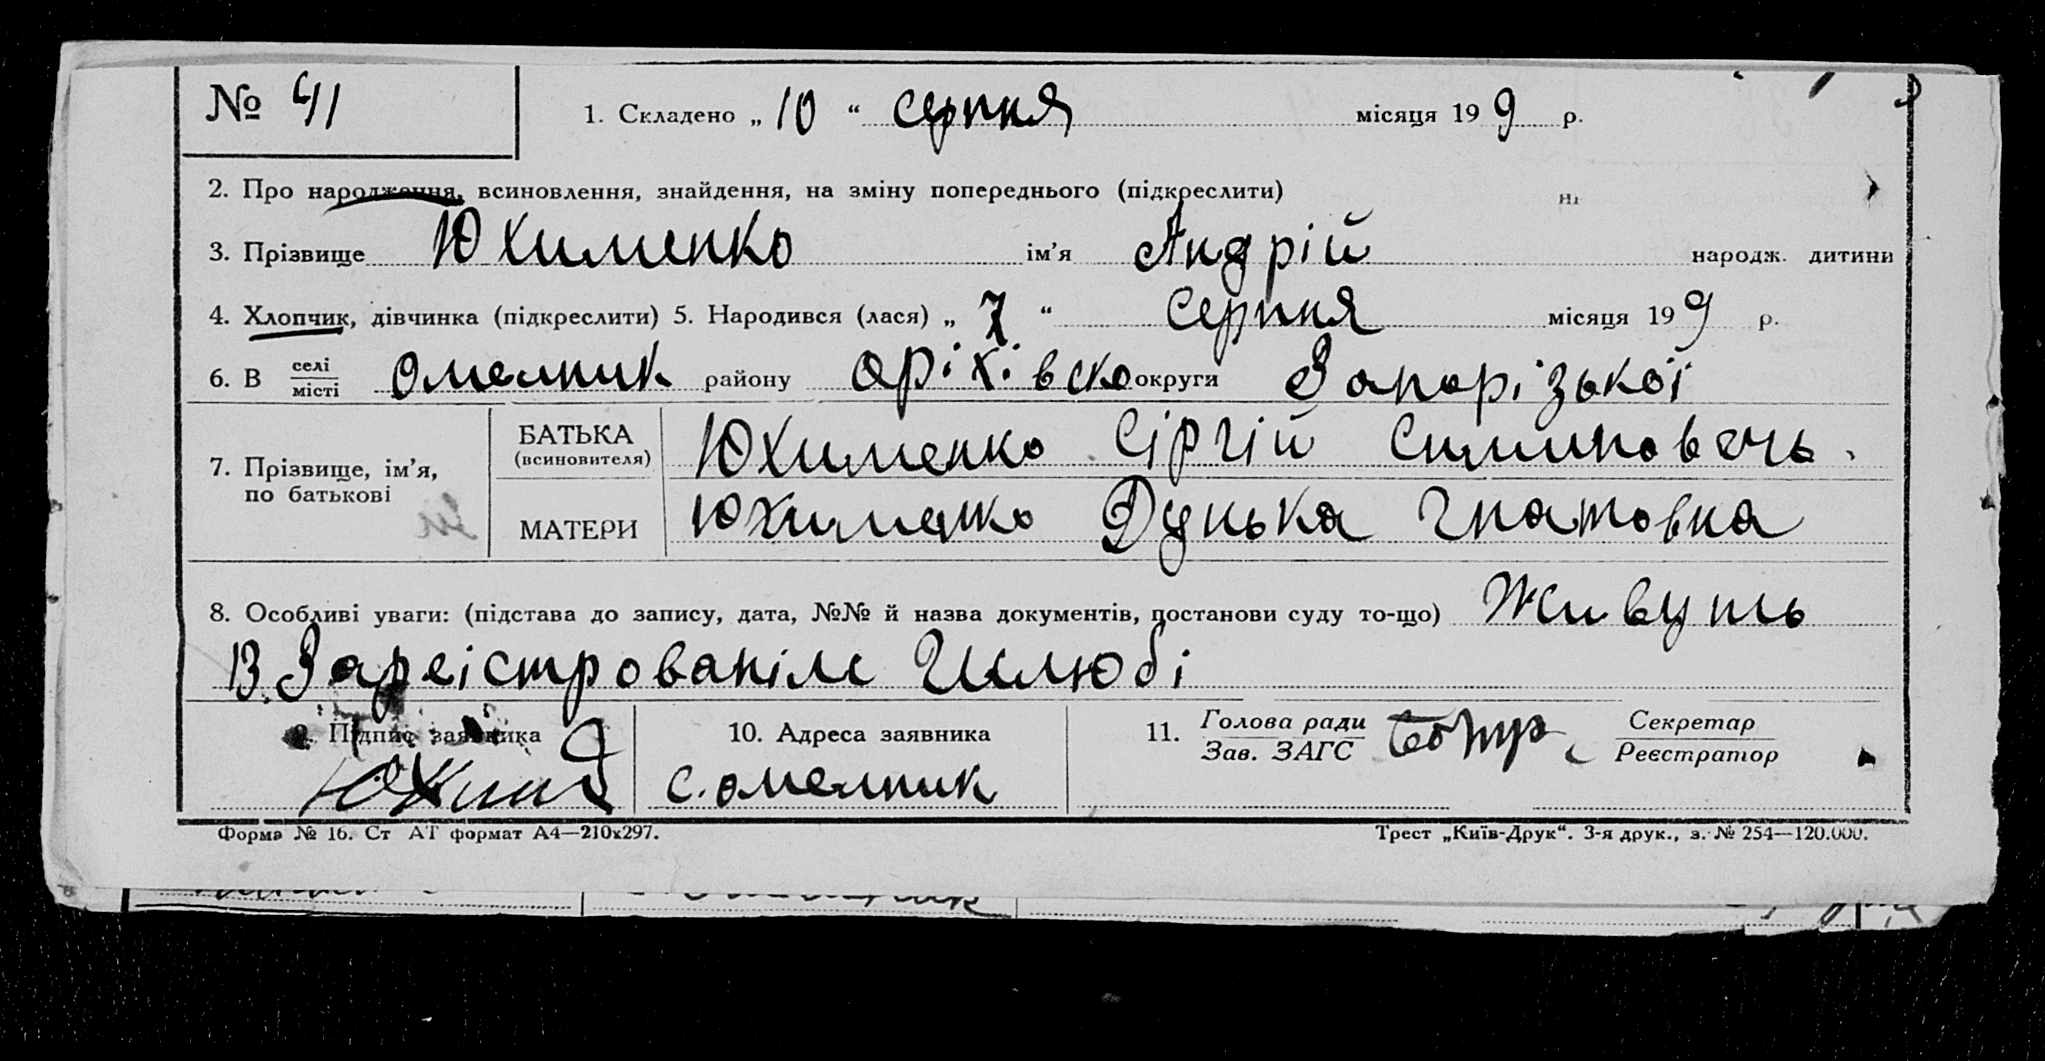 № 41
1. Складено „ 10 “ серпня місяця 19 9 р.
2. Про народження, всиновлення, знайдення, на зміну попереднього (підкреслити)
3. Прізвище Юхименко ім’я Андрій народж. дитини
4. Хлопчик, дівчинка (підкреслити) 5. Народився (лася) „ 7 “ серпня місяця 19 9 р.
6. В селі/місті Омелник району Оріхівско округи Запорізької
7. Прізвище, ім’я, по батькові
БАТЬКА (всиновителя) Юхименко Сіргій
МАТЕРИ Юхименко Дунька Гнатовна
8. Особливі уваги: (підстава до запису, дата, №№ й назва документів, постанови суду то-що) Живуть
В Зареістрованім Шлюбі
9. Підпис заявника
10. Адреса заявника
с. Омелник
11. Голова ради/Зав. ЗАГС
Секретар/Реєстратор
Форма № 16. Ст АТ формат А4—210х297.
Трест „Київ-Друк“. 3-я друк., з. № 254—120.000.